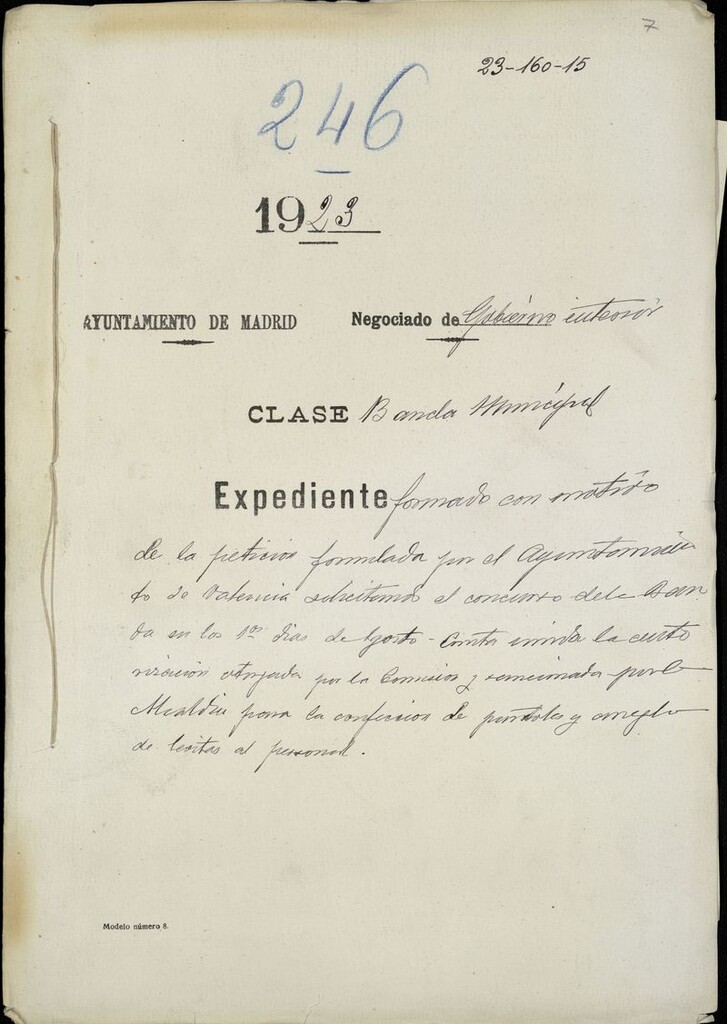 7
23-160-15
246
1923
AYUNTAMIENTO DE MADRID
Negociado de Gobierno interior
CLASE Banda Municipal
Expediente formado con motivo
de la peticion formulada por el Ayuntamien
to de Valencia solicitando el concurso de la Ban
da en los 1os dias de Agosto - Consta unida la auto
rización otorgada por la Comision y sancionada por la
Alcaldia para la confeccion de pantalones y arreglo
de levitas al personal.
Modelo número 8.